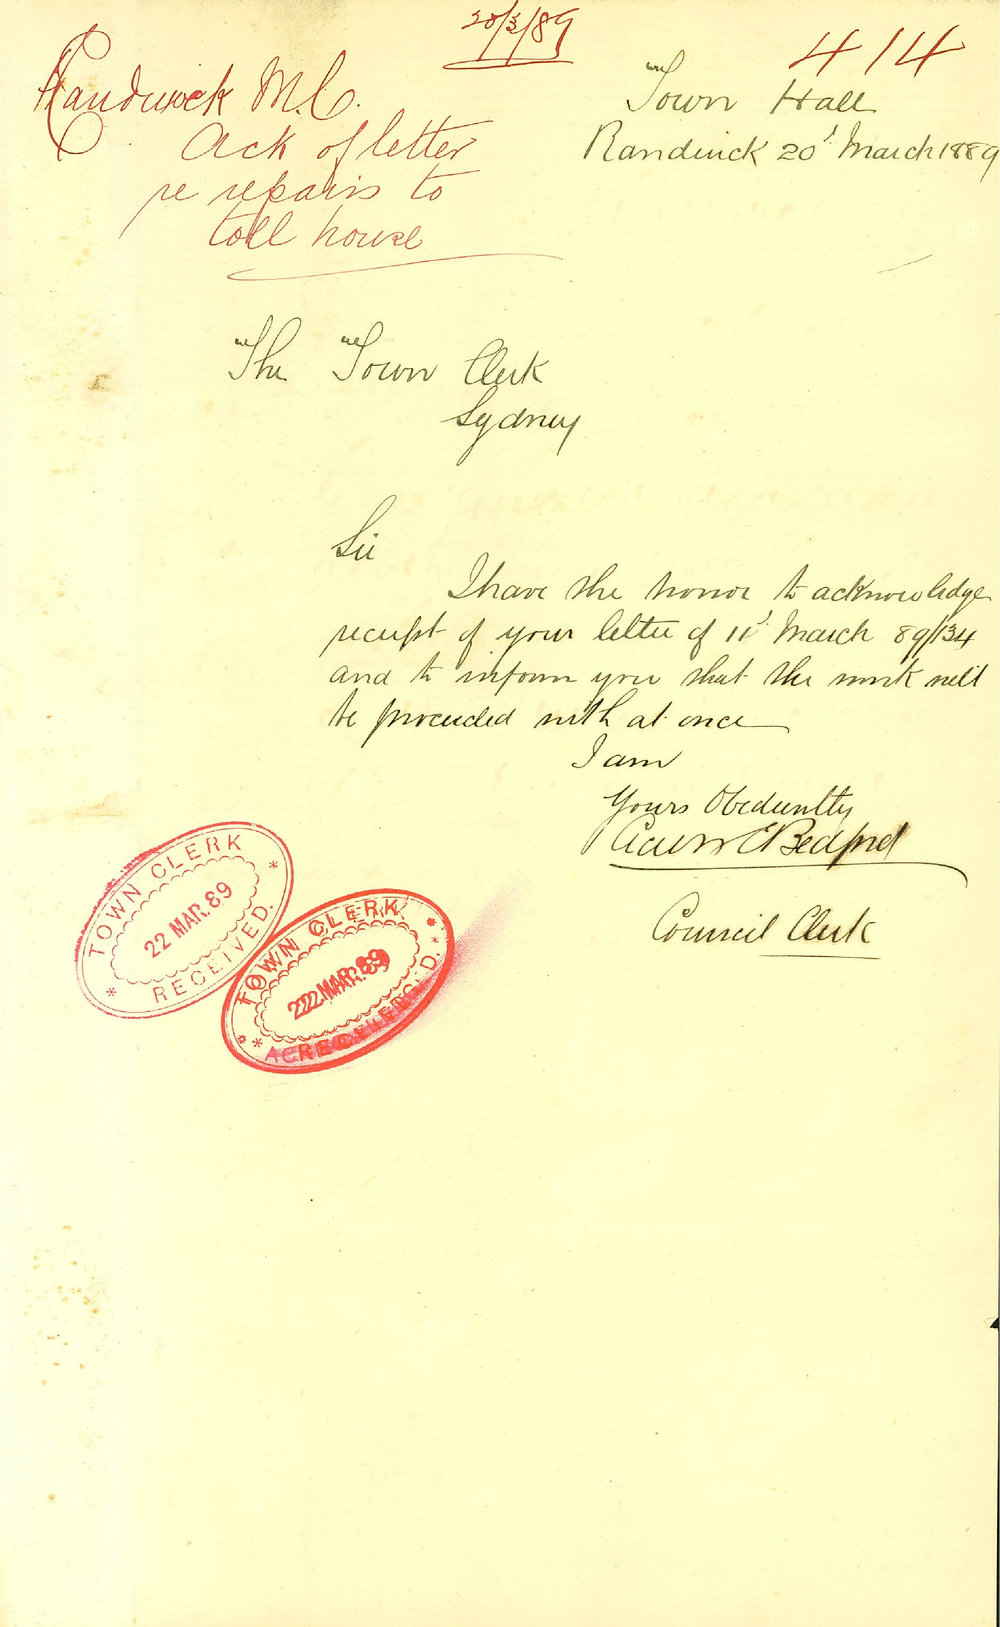 20/3/89
414
Randwick M.C.
Ack of letter
re repairs to
toll house
Town Hall
Randwick 20' March 1889
The Town Clerk
Sydney
Sir
I have the honor to acknowledge
receipt of your letter of 11' March 89/134
and to inform you that the work will
be proceeded with at once
I am
Yours Obediently
Bedford
Council Clerk
TOWN CLERK
22 MAR.89
RECEIVED.
TOWN CLERK